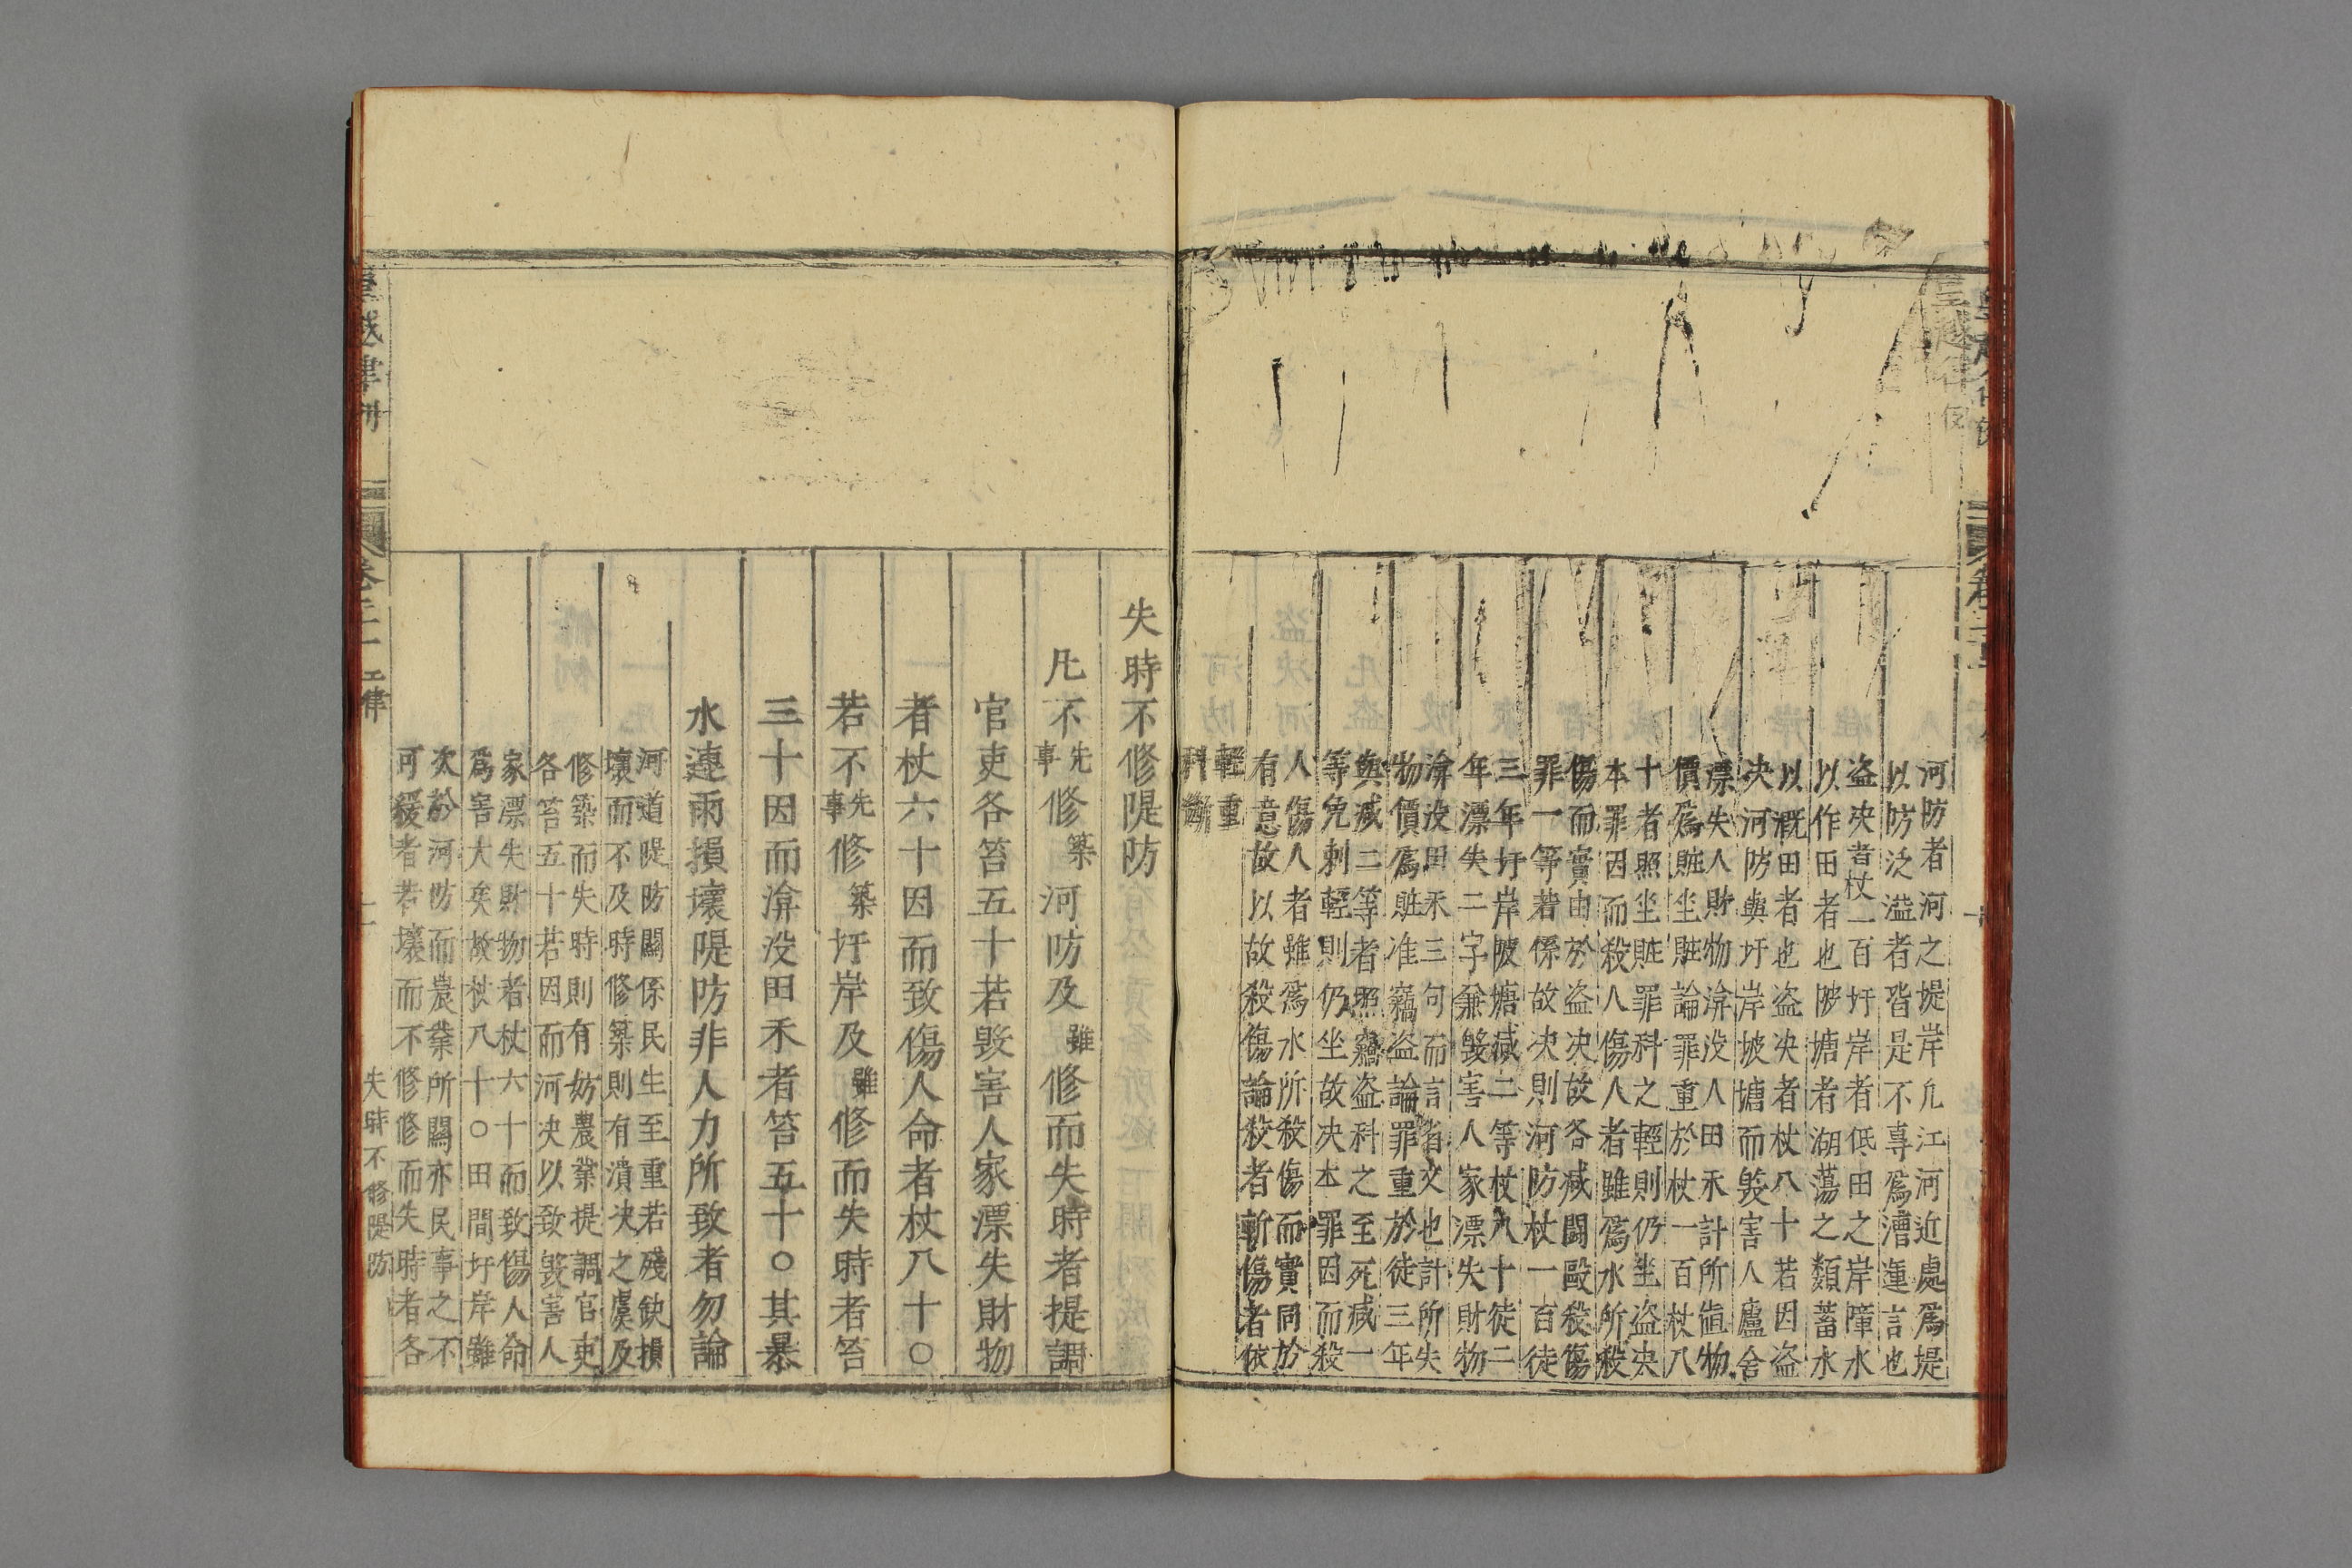 河防者河之堤岸凢江河近處爲堤
以防泛溢者皆是不專爲漕運言也
盗决者杖一百圩岸者低田之岸障水
以作田者也陂塘者湖蕩之類蓄水
以溉田者也盗决者杖八十若因盗
决河防與圩岸坡塘而毁害人廬舍
漂失人財物渰没人田禾計所值物
價爲賍坐賍論罪重於杖一百杖八
十者照坐賍罪科之輕則仍坐盗决
本罪因而殺人傷人者雖爲水所殺
傷而實由於盗决故各减鬪毆殺傷
罪一等若係故决則河防杖一百徒
三年圩岸陂塘减二等杖八十徒二
年漂失二字兼毁害人家漂失財物
渰没田禾三句而言省文也計所失
物價爲賍准竊盗論罪重於徒三年
與减二等者照竊盗科之至死减一
等免刺輕則仍坐故决本罪因而殺
人傷人者雖爲水所殺傷而實同於
有意故以故殺傷論殺者斬傷者依
輕重
科斷
失時不修隄防
凡不先事修築河防及雖修而失時者提調
官吏各笞五十若毁害人家漂失財物
者杖六十因而致傷人命者杖八十○
若不先事修築圩岸及雖修而失時者笞
三十因而渰没田禾者笞五十○其暴
水連雨損壞隄防非人力所致者勿論
河道隄防關係民生至重若殘缺損
壞而不及時修築則有潰决之虞及
修築而失時則有妨農業提調官吏
各笞五十若因而河决以致毁害人
家漂失財物者杖六十而致傷人命
爲害大矣故杖八十○田間圩岸雖
次於河防而農業所關亦民事之不
可緩者若壞而不修修而失時者各
皇越律例 卷二十一 工律 十一 失時不修隄防